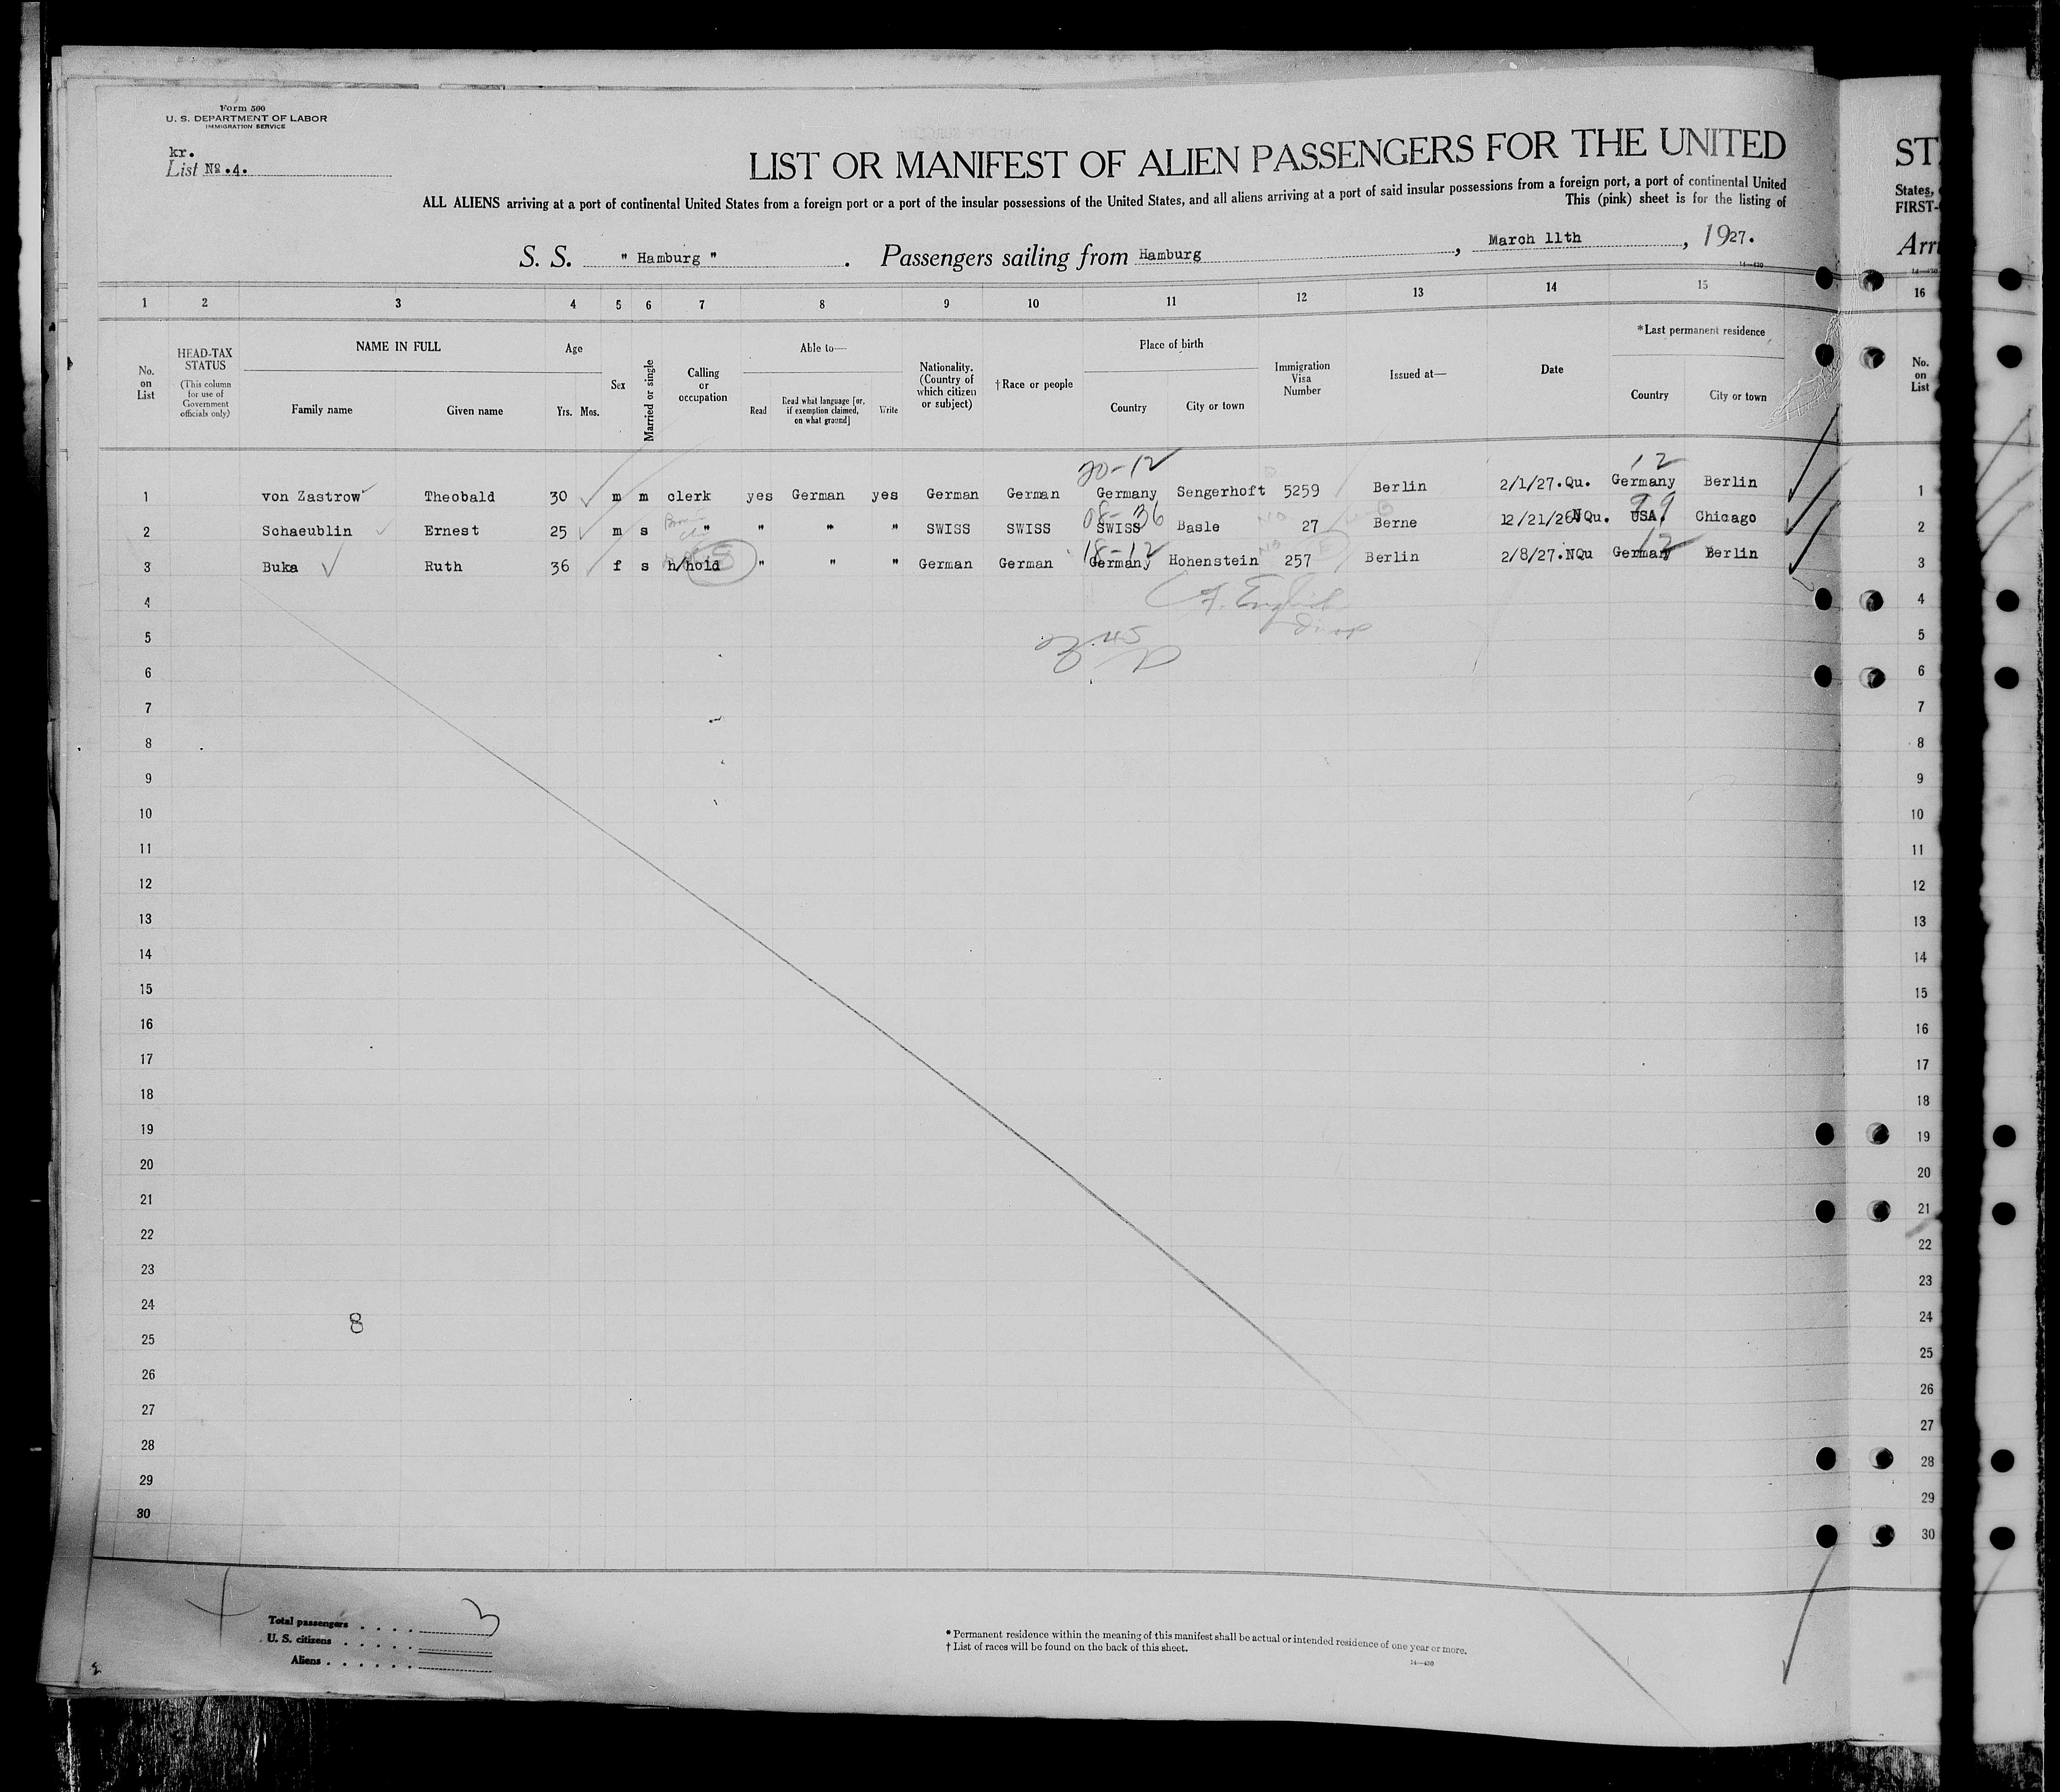 Form 500
U. S. DEPARTMENT OF LABOR
IMMIGRATION SERVICE
kr.
List № .4.
LIST OR MANIFEST OF ALIEN PASSENGERS FOR THE UNITED
ALL ALIENS arriving at a port of continental United States from a foreign port or a port of the insular possessions of the United States, and all aliens arriving at a port of said insular possessions from a foreign port, a port of continental United
This (pink) sheet is for the listing of
S. S. " Hamburg " . Passengers sailing from Hamburg , March 11th , 1927.
14—430
ST
States,
FIRST-
Arri
1 2 3 4 5 6 7 8 9 10 11 12 13 14 15 16
No. on List
HEAD-TAX STATUS
(This column for use of Government officials only)
NAME IN FULL
Family name Given name
Age
Yrs. Mos.
Sex
Married or single
Calling or occupation
Able to—
Read Read what language [or, if exemption claimed, on what ground] Write
Nationality. (Country of which citizen or subject)
†Race or people
Place of birth
Country City or town
Immigration Visa Number
Issued at—
Date
*Last permanent residence
Country City or town
No. on List
20-12 12
1 von Zastrow Theobald 30 m m clerk yes German yes German German Germany Sengerhoft 5259 Berlin 2/1/27.Qu. Germany Berlin 1
08-36 99
2 Schaeublin Ernest 25 m s " " " " SWISS SWISS SWISS Basle 27 Berne 12/21/26 NQu. USA. Chicago 2
18-12 12
3 Buka Ruth 36 f s h/hold " " " German German Germany Hohenstein 257 Berlin 2/8/27.NQu Germany Berlin 3
4 4
5 5
6 6
7 7
8 8
9 9
10 10
11 11
12 12
13 13
14 14
15 15
16 16
17 17
18 18
19 19
20 20
21 21
22 22
23 23
24 24
8
25 25
26 26
27 27
28 28
29 29
30 30
Total passengers . . . . 3
U. S. citizens . . . . .
Aliens . . . . . .
* Permanent residence within the meaning of this manifest shall be actual or intended residence of one year or more.
† List of races will be found on the back of this sheet.
14—430